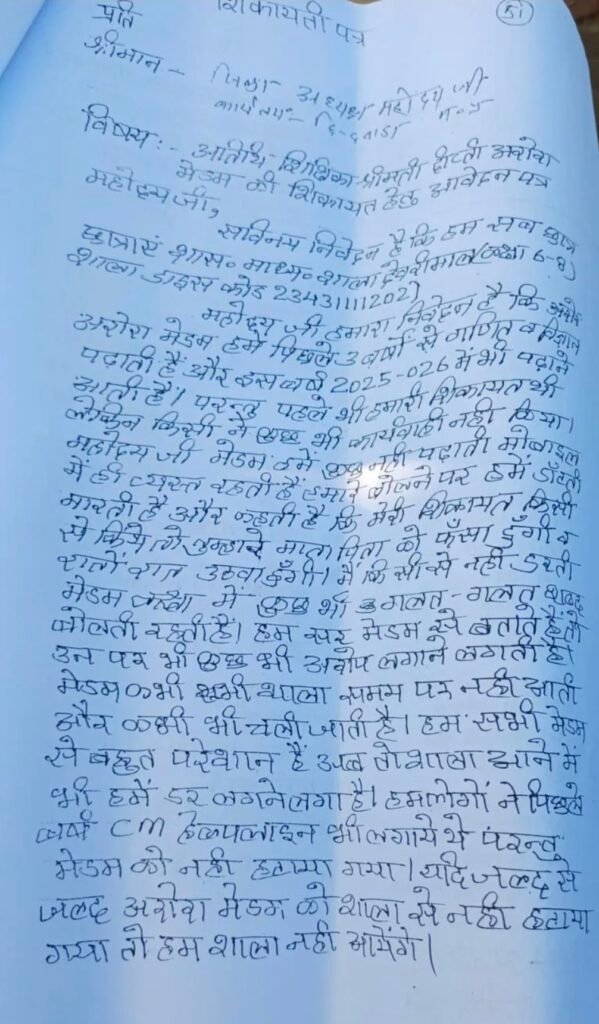 शिकायती पत्र
51
प्रति
श्रीमान - जिला अध्यक्ष महोदय जी
कार्यालय -
विषय :- अतिथि शिक्षिका श्रीमती अरोरा
मेडम की शिकायत हेतु आवेदन पत्र
महोदय जी,
सविनय निवेदन है कि हम सब छात्र
छात्राएं शास. माध्य. शाला देवरीमाल (कक्षा 6-8)
शाला डाइस कोड 23431111202)
महोदय जी हमारा निवेदन है कि
अरोरा मेडम हमें पिछले 3 वर्षों से गणित व विज्ञान
पढ़ाती हैं और इस वर्ष 2025-026 में भी पढ़ाने
आती हैं। परन्तु पहले भी हमारी शिकायत थी
लेकिन किसी ने कुछ भी कार्यवाही नही किया।
महोदय जी मेडम हमें कुछ नही पढ़ाती मोबाइल
में ही व्यस्त रहती हैं हमारे बोलने पर हमें डाँटती
मारती है और कहती है कि मेरी शिकायत किसी
से किये तो तुम्हारे माता पिता को फँसा दुँगी व
रातों रात उठवा दुँगी। मैं किसी से नहीं डरती
मेडम कक्षा में कुछ भी गलत-गलत शब्द
बोलती रहती हैं। हम सर मेडम से बताते हैं तो
उन पर भी कुछ भी अरोप लगाने लगती है।
मेडम कभी भी शाला समय पर नही आती
और कभी भी चली जाती है। हम सभी मेडम
से बहुत परेशान हैं अब तो शाला आने में
भी हमें डर लगने लगा है। हमलोगों ने पिछले
वर्ष CM हेल्पलाइन भी लगाये थे परन्तु
मेडम को नही हटाया गया। यदि जल्द से
जल्द अरोरा मेडम को शाला से नही हटाया
गया तो हम शाला नही आयेंगे।